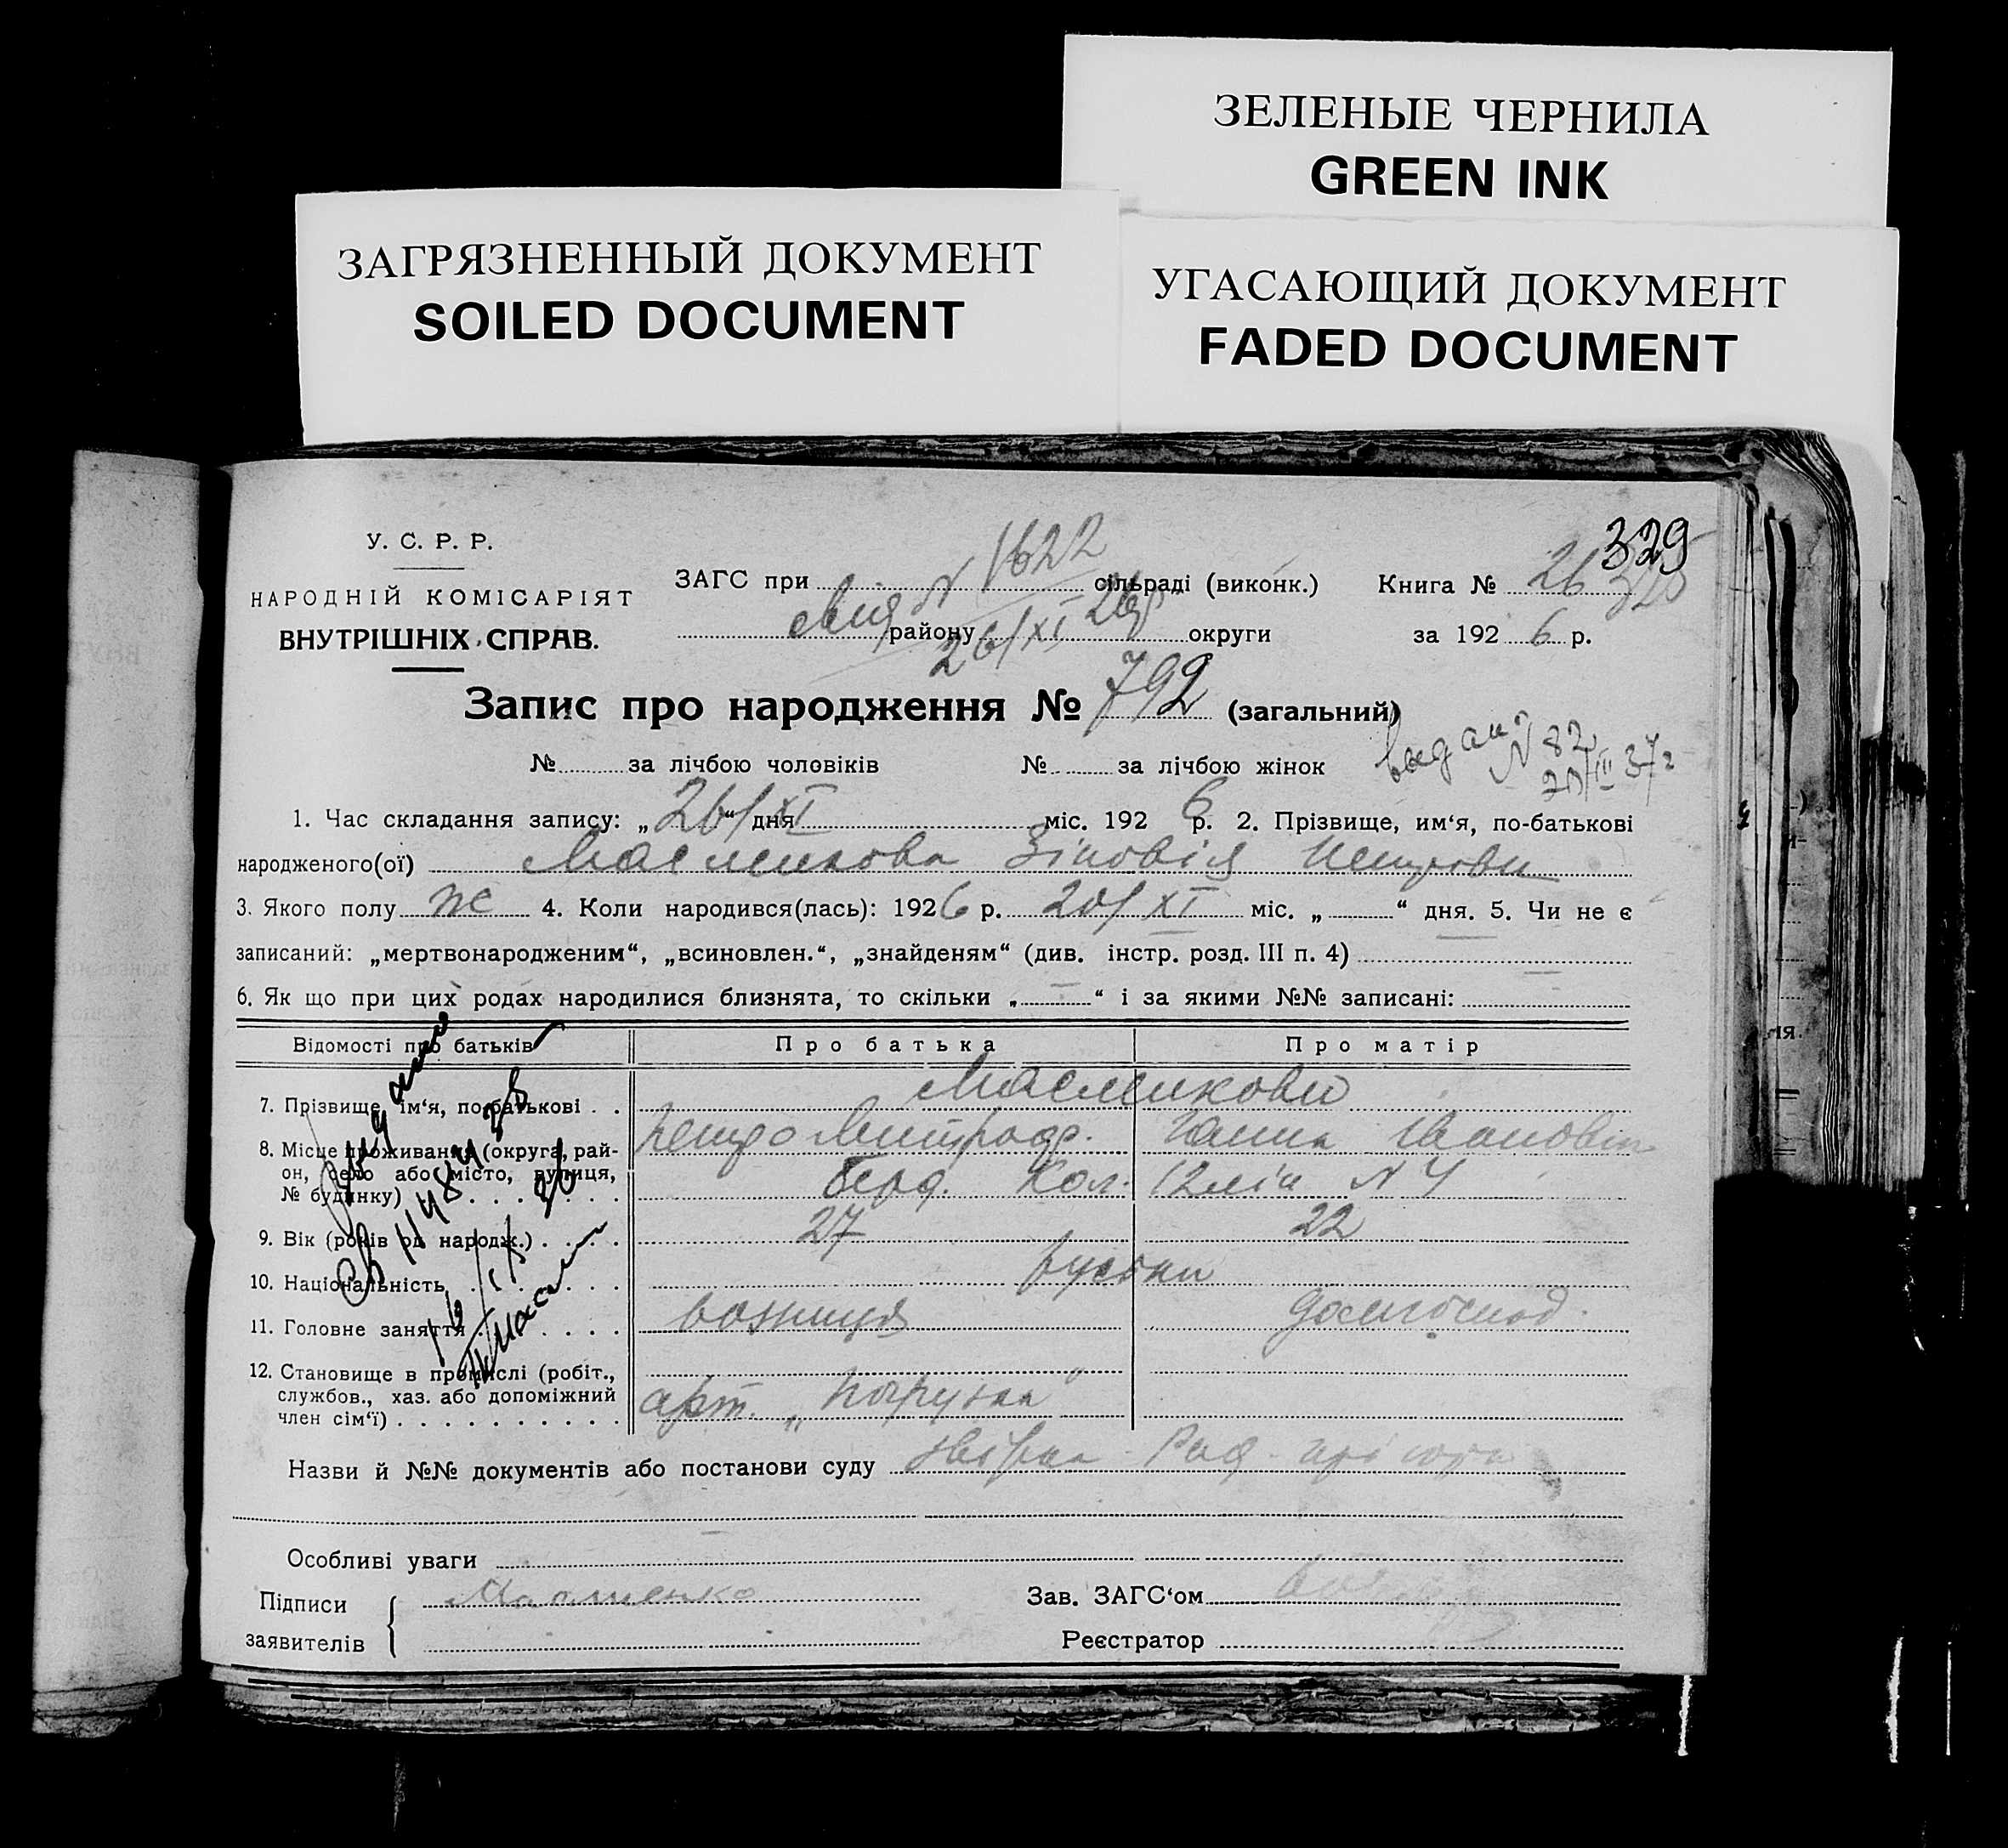 ЗЕЛЕНЫЕ ЧЕРНИЛА
GREEN INK
ЗАГРЯЗНЕННЫЙ ДОКУМЕНТ
SOILED DOCUMENT
УГАСАЮЩИЙ ДОКУМЕНТ
FADED DOCUMENT
329
У. С. Р. Р.
НАРОДНІЙ КОМІСАРІЯТ
ВНУТРІШНІХ СПРАВ.
N 1622
ЗАГС при сільраді (виконк.) Книга № 26
району округи за 192 6 р.
26/XI 26р
Запис про народження № 792 (загальний)
№ за лічбою чоловіків № за лічбою жінок
N 82
20/III 37г
1. Час складання запису: „26/XI“ дня міс. 192 6 р. 2. Прізвище, им‘я, по-батькові
народженого(ої) Масликова Зіновія Петровн
3. Якого полу ж 4. Коли народився(лась): 1926 р. 20/XI міс. „ “ дня. 5. Чи не є
записаний: „мертвонародженим“, „всиновлен.“, „знайденям“ (див. інстр. розд. III п. 4)
6. Як що при цих родах народилися близнята, то скільки „ “ і за якими №№ записані:
Відомості про батьків Про батька Про матір
Масликови
7. Прізвище, ім‘я, по-батькові
Петро Митроф. Ганна Івановн
8. Місце проживання (округа, рай-
он, село або місто, вулиця,
№ будинку) Берд. Кол. 12 лін N 4
9. Вік (років од народж.) 27 22
10. Національність руськи
11. Головне заняття возниця домгоспод.
12. Становище в промислі (робіт.,
службов., хаз. або допоміжний
член сім‘ї) арт. „Погрузка“
Назви й №№ документів або постанови суду
Особливі уваги
Підписи
заявителів
Зав. ЗАГС‘ом
Реєстратор